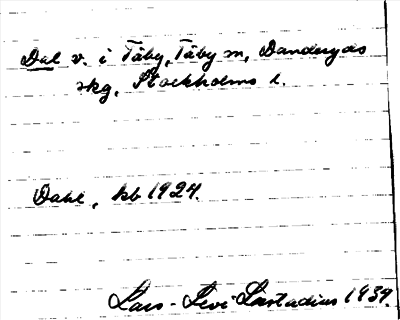 Dal v. i Täby, Täby sn, Danderyds
skg, Stockholms l.
Dahl, kb 1924.
Lars-Levi Læstadius 1939.